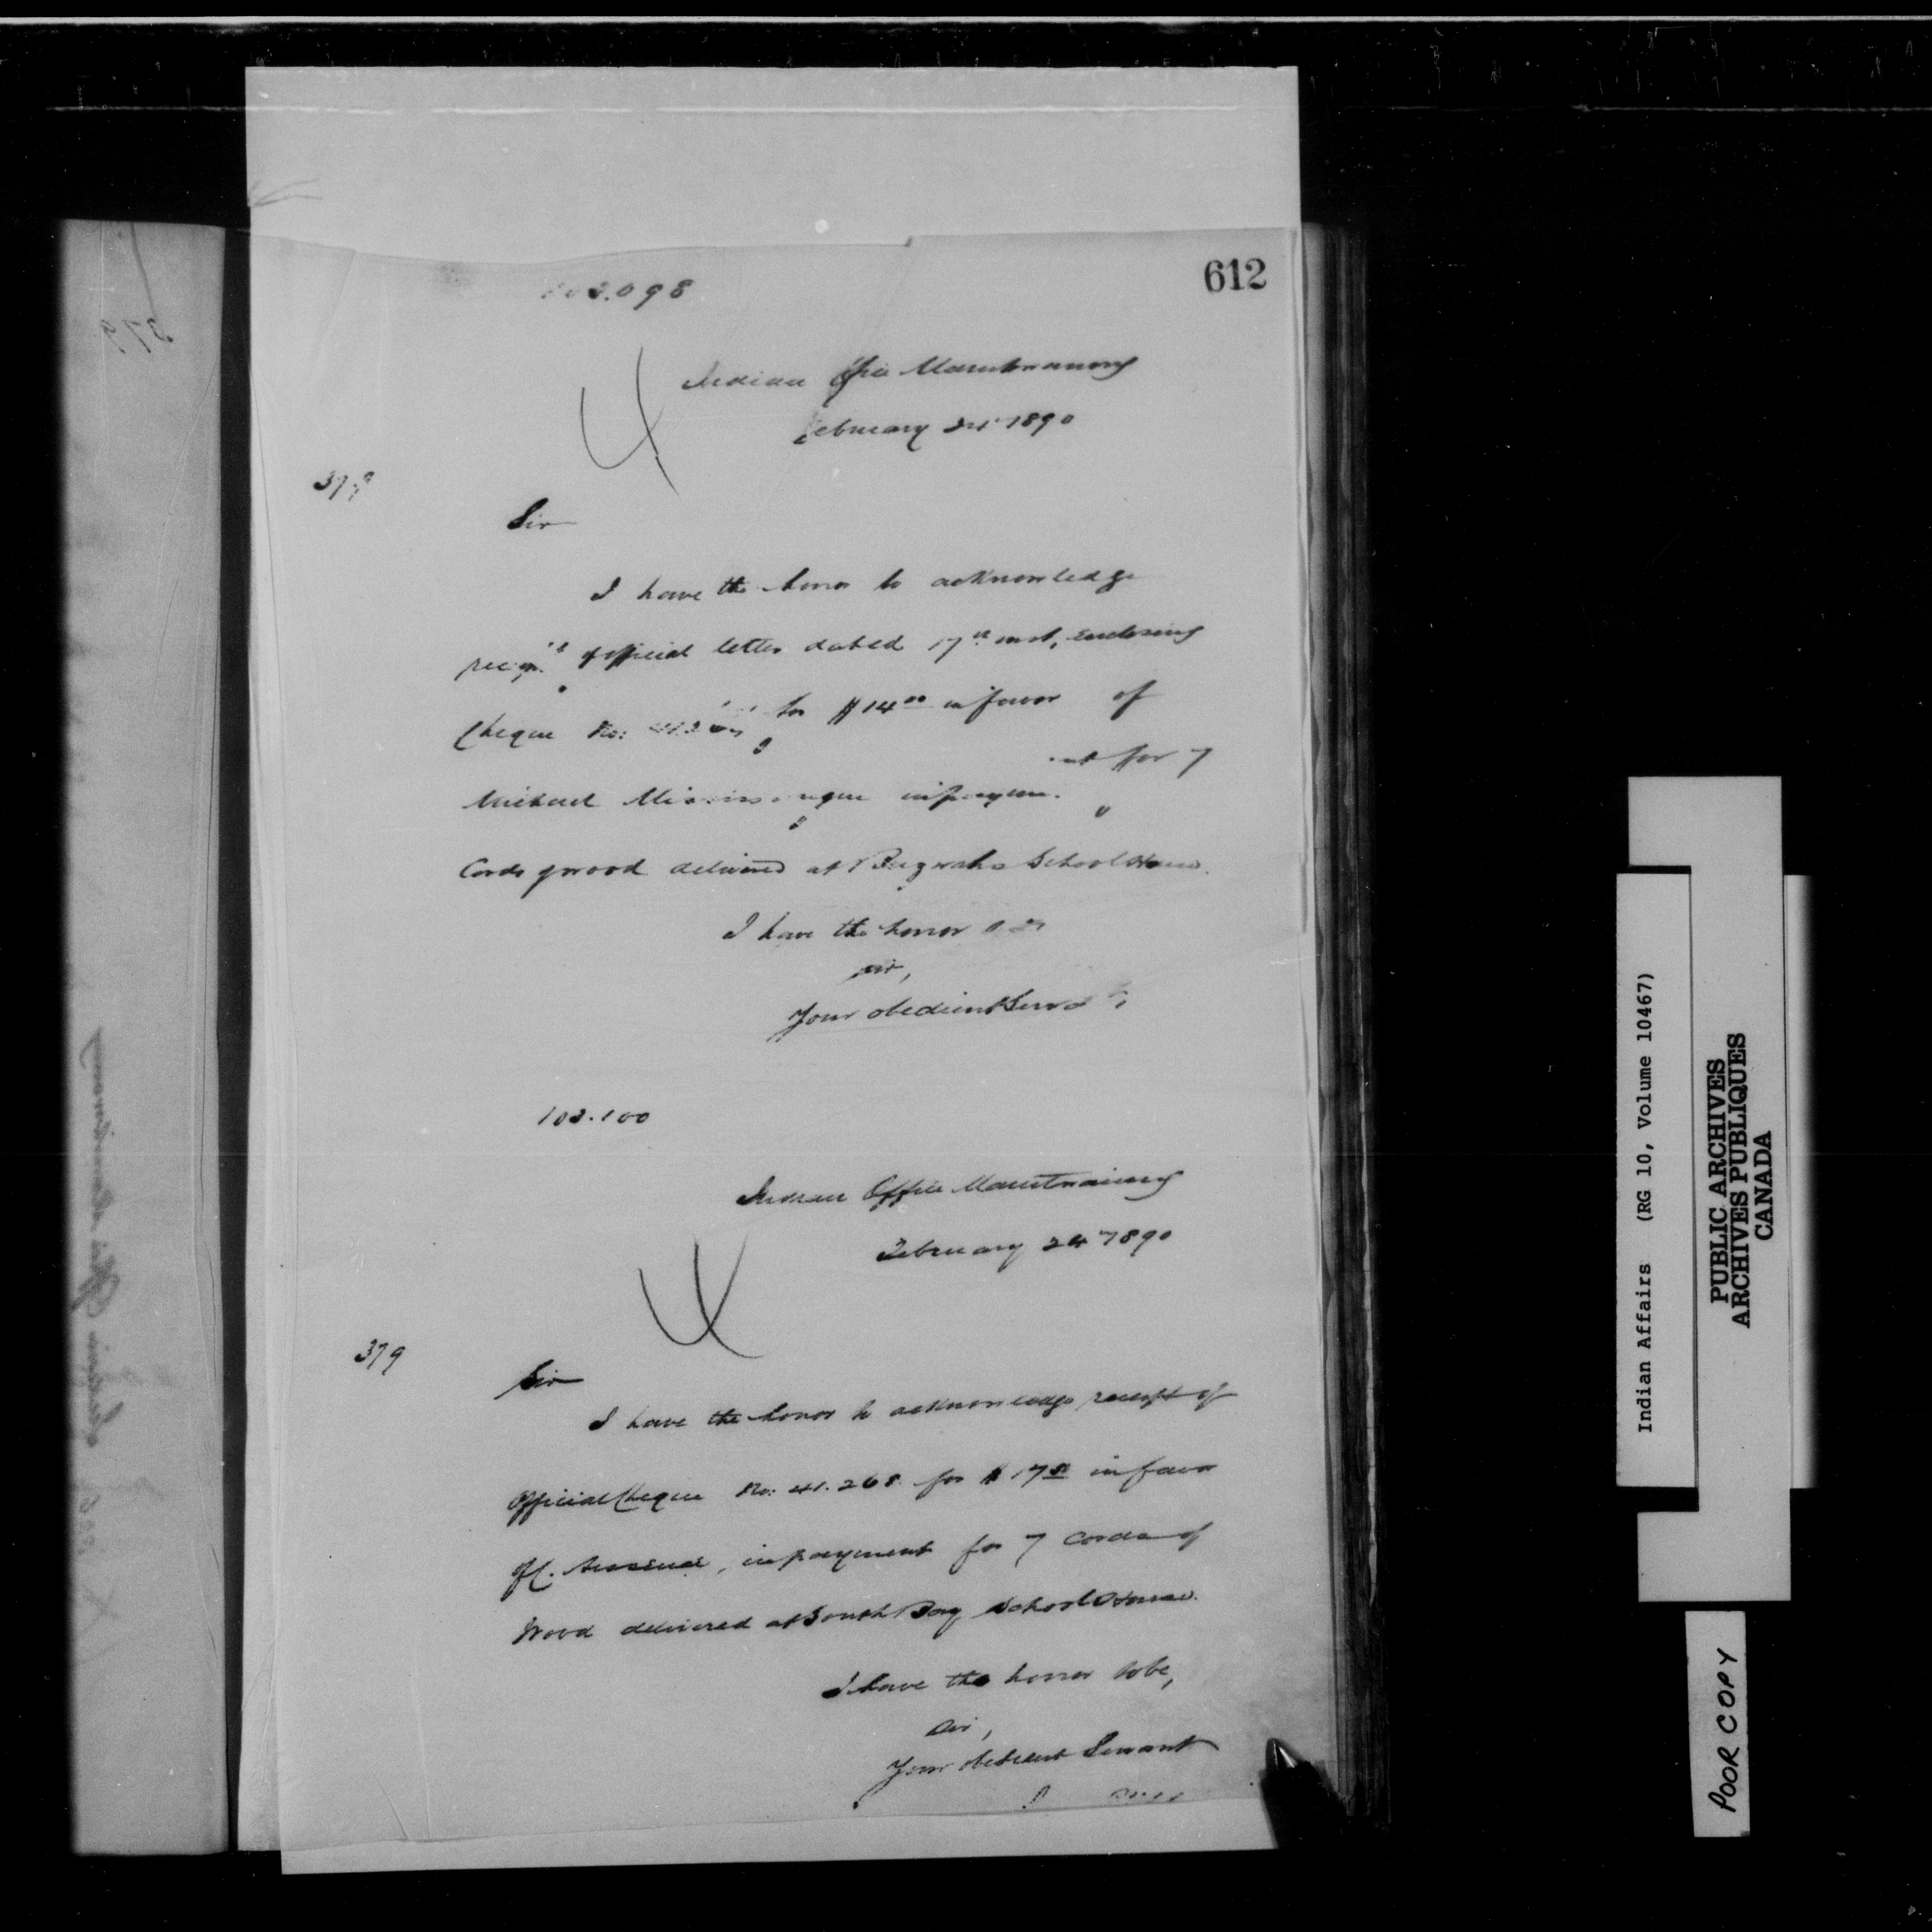 612
103.098
Indian Office Manitowaning
February 24 1890
378
Sir
I have the honor to acknowledge
receipt of official letter dated 17th inst, enclosing
Cheque No: for $14.00 in favor of
Michael in payment for 7
Cords of wood delivered at School House.
I have the honor
Sir,
Your obedient Servant
103.100
Indian Office Manitowaning
February 24 1890
379
Sir
I have the honor to acknowledge receipt of
Official Cheque No: 41.268. for $17.50 in favor
of in payment for 7 Cords of
Wood delivered at South Bay School House.
I have the honor to be,
Sir,
Your obedient Servant
Indian Affairs (RG 10, Volume 10467)
PUBLIC ARCHIVES
ARCHIVES PUBLIQUES
CANADA
POOR COPY